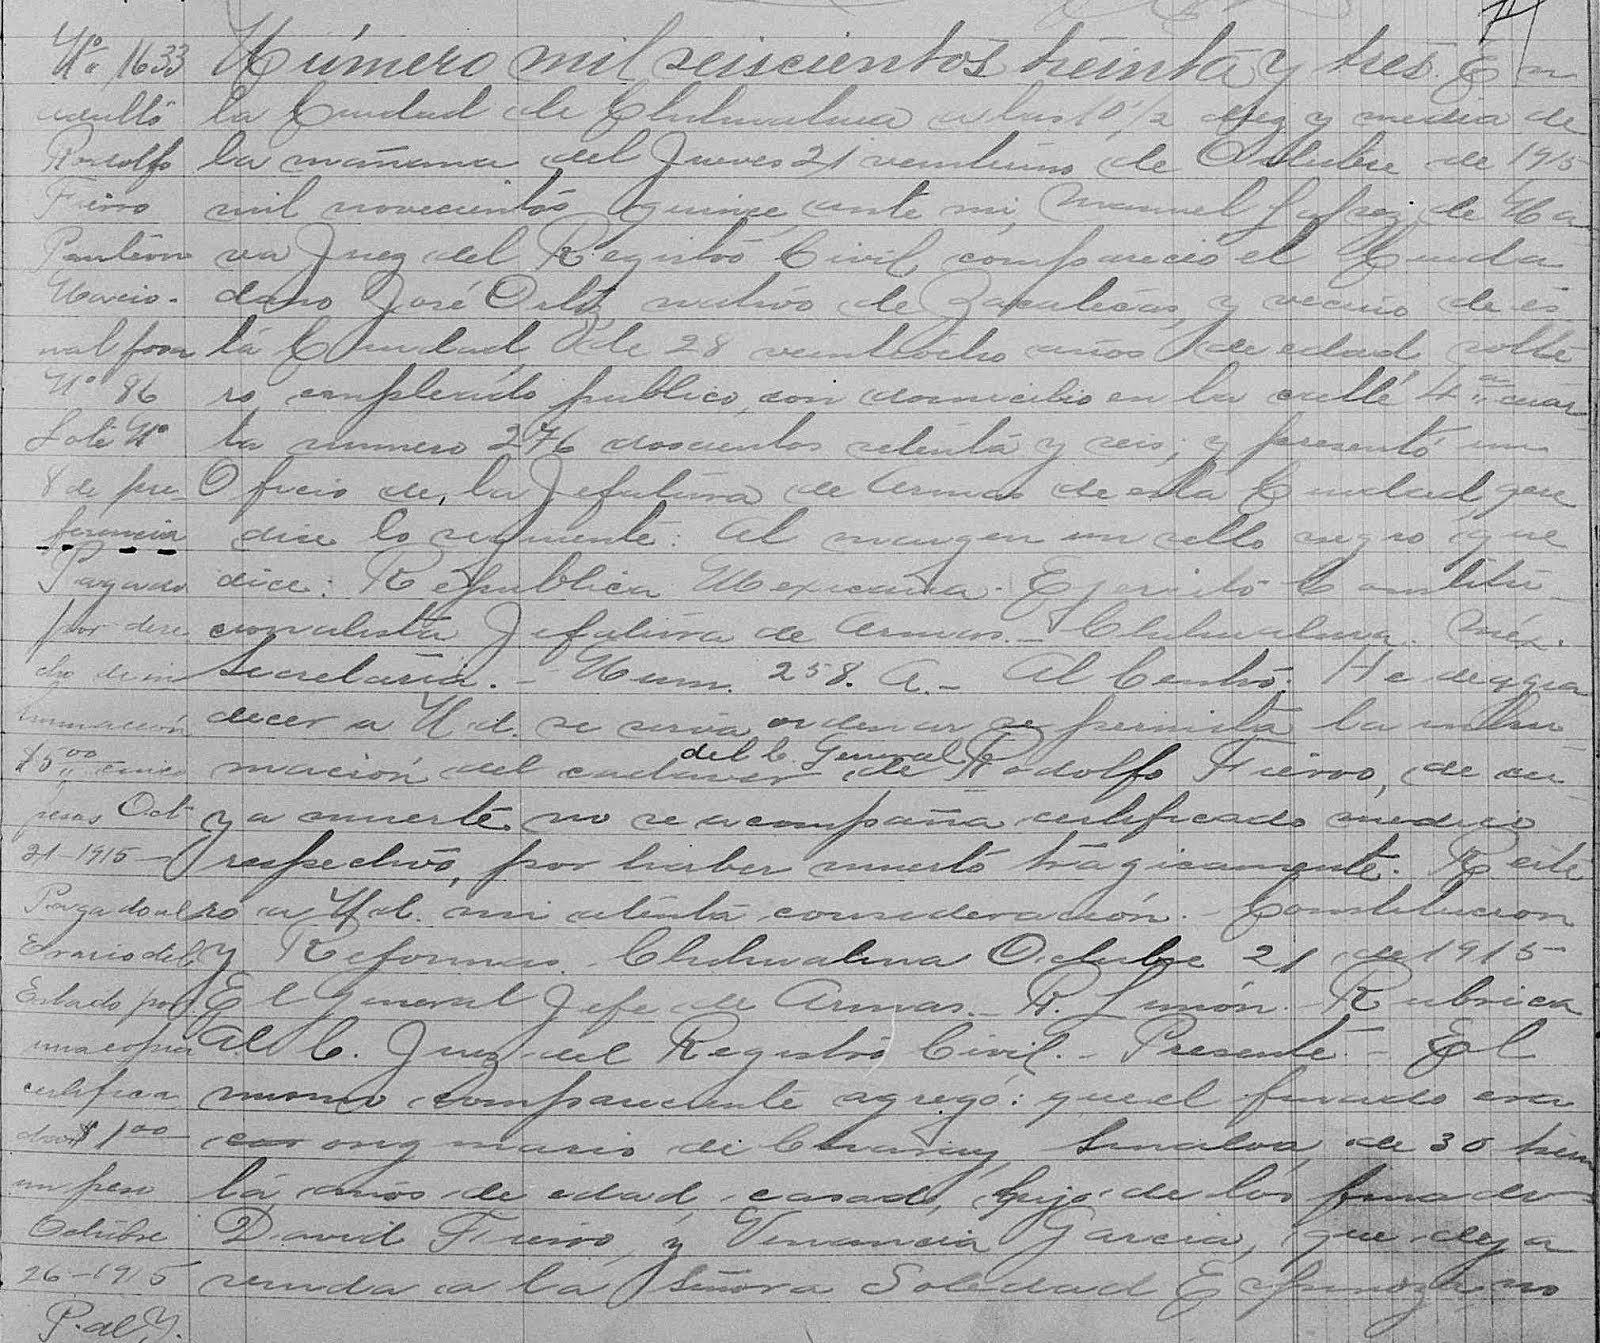 N° 1633
adulto
Rodolfo
Fierro
Panteon
Nacio-
nal fosa
N° 86
Lote N°
8 de pre
ferencia
Pagado
por dere
cho de in
humación
$5.00 cinco
pesos Oct
21-1915-
Pagado al
Erario del
Estado por
una copia
certifica
da $1.00
un peso
Octubre
26-1915
P. al J.
Número mil seiscientos treinta y tres. En
la Ciudad de Chihuahua a las 10 1/2 diez y media de
la mañana del Jueves 21 veintiuno de Octubre de 1915
mil novecientos quince, ante mi, Manuel Lopez de Na
va Juez del Registro Civil, compareció el Ciuda
dano José Ortiz, nativo de Zacatecas, y vecino de es
ta Ciudad, de 28 veintiocho años de edad, solte
ro empleado publico, con domicilio en la calle 4a cuar
ta numero 276 doscientos setenta y seis; y presentó un
Oficio de la Jefatura de Armas de esta Ciudad, que
dice lo siguiente: Al margen un sello negro que
dice: Republica Mexicana. Ejercito Constitu-
cionalista Jefatura de Armas. - Chihuahua. Méx.
Secretaría. - Num. 258. A. - Al Centro: He de agra
decer a Ud. se sirva ordenar se permita la inhu
mación del cadaver del C. General de Rodolfo Fierro, de cu-
ya muerte no se acompaña certificado medico
respectivo, por haber muerto trágicamente. Reite
ro a Ud. mi atenta consideración. - Constitucion
y Reformas. Chihuahua Octubre 21 de 1915
El General Jefe de Armas. - R. Limón. Rubrica
Al C. Juez del Registro Civil. - Presente. - El
mismo compareciente agregó: que el finado era
ong inario de Charay, Sinaloa, de 30 trein
ta años de edad, casado, hijo de los finados
David Fierro, y Venancia Garcia, que deja
viuda a la Señora Soledad Espinoza, no